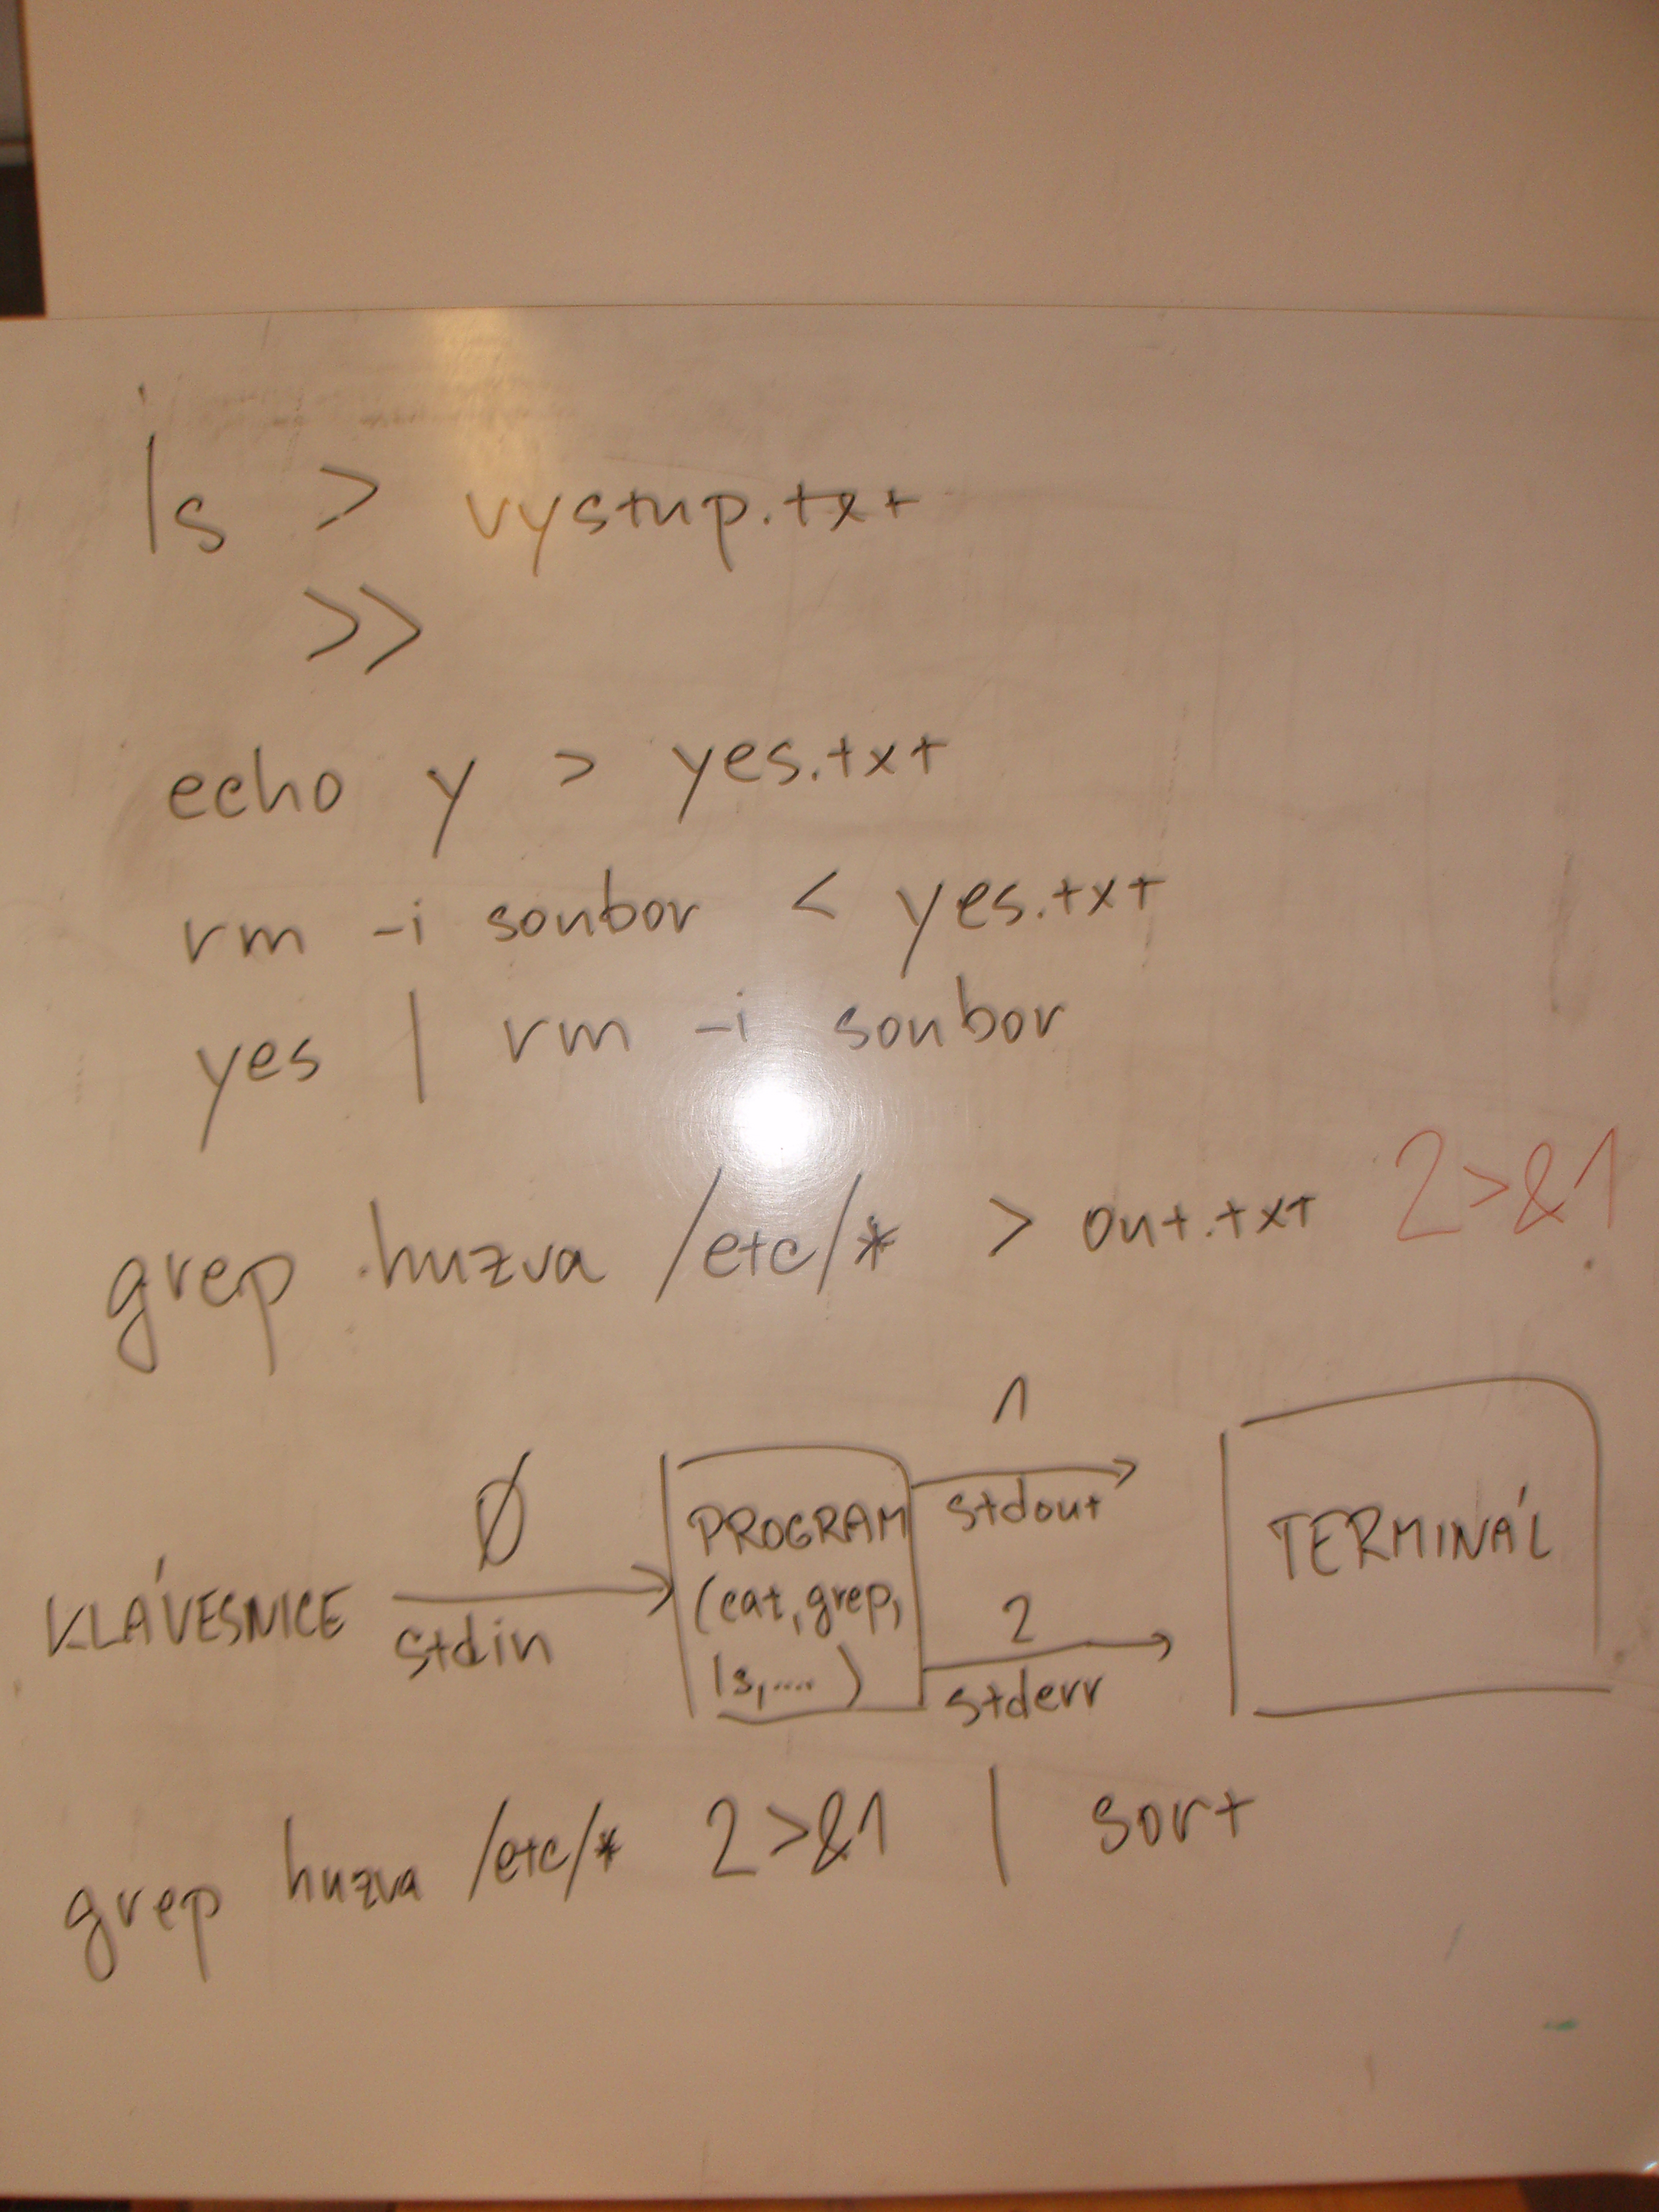 ls > vystup.txt
>>
echo y > yes.txt
rm -i soubor < yes.txt
yes | rm -i soubor
grep huzva /etc/* > out.txt 2>&1
KLÁVESNICE
0
stdin
PROGRAM
(cat, grep,
ls,....)
1
stdout
2
stderr
TERMINÁL
grep huzva /etc/* 2>&1 | sort